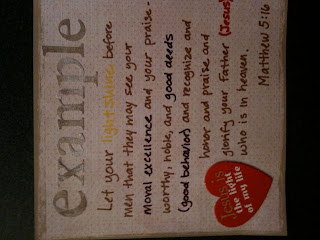 example
Let your light shine before
men that they may see your
moral excellence and your praise-
worthy, noble, and good deeds
(good behavior) and recognize and
honor and praise and
glorify your Father (Jesus)
who is in heaven.
Matthew 5:16
Jesus is
the light
of my life